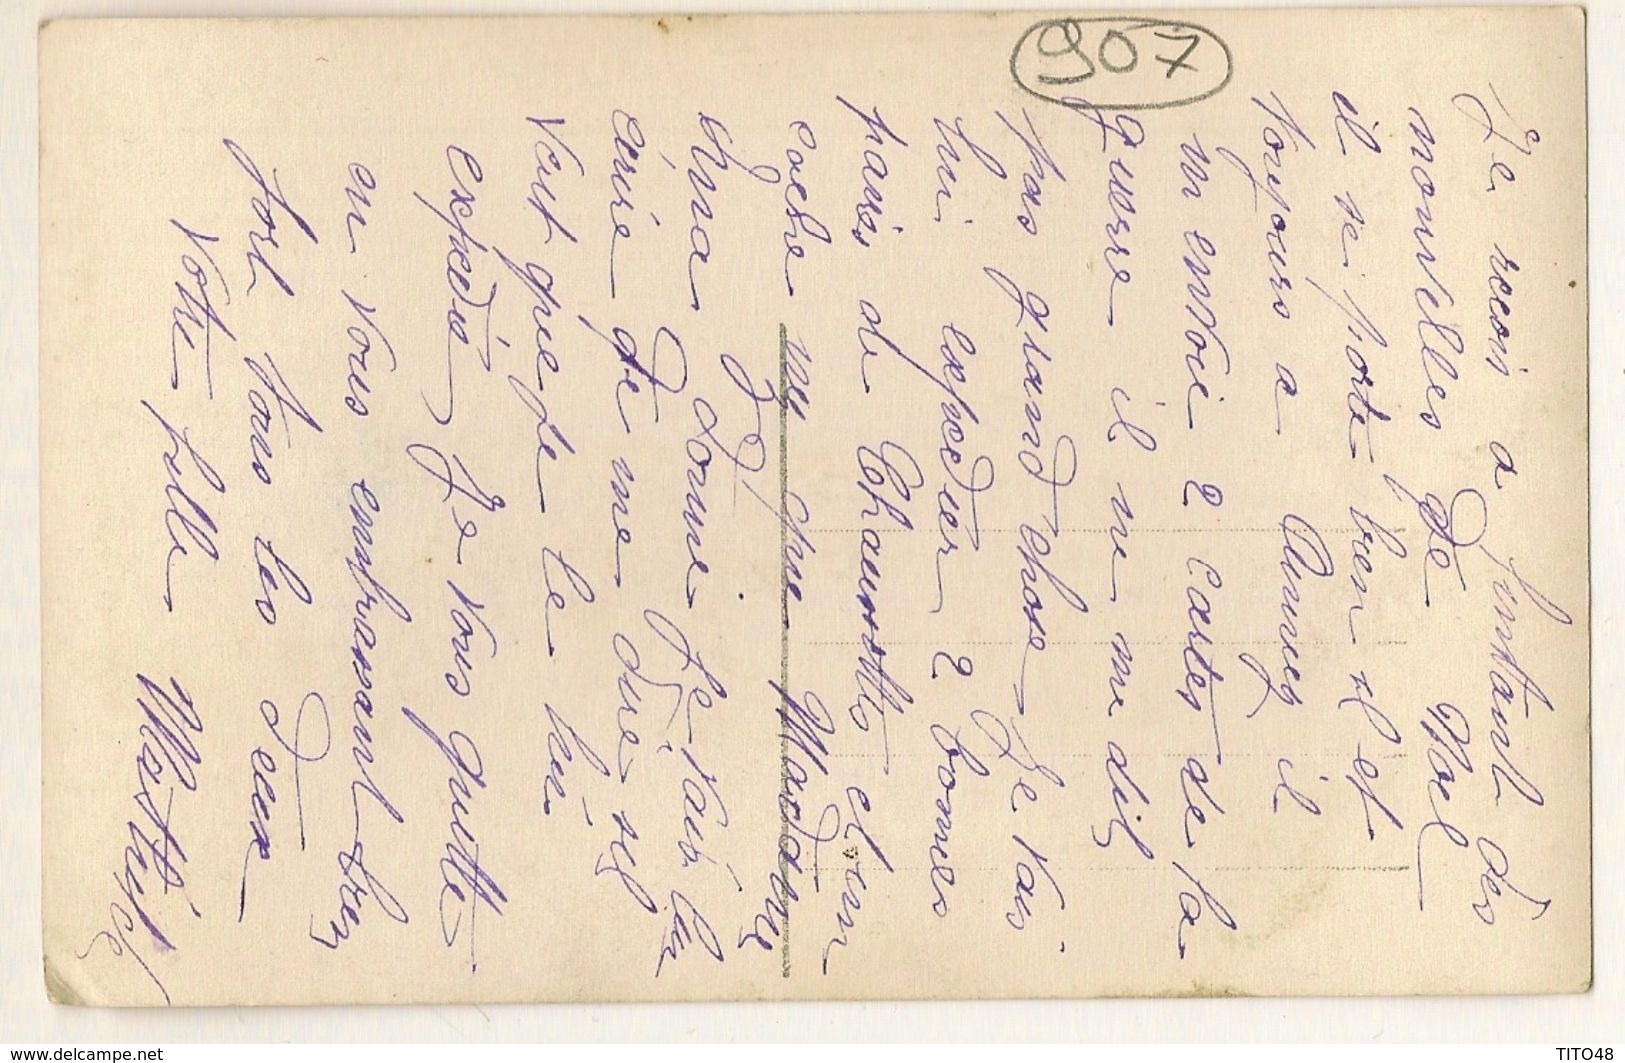 907
Je recois a l'instant des
nouvelles de Noel
il se porte bien il et
toujours a Annecy il
m envoie 2 cartes de la
guerre il ne me dit
pas grand chose Je vais
lui expedier 2 bonnes
paires de Chaussettes et un
cache que Mardine
ma donné Je vais lui
écrire de me dire sil
veut que je le lui
expedie Je vous quitte
en vous embrassant bien
fort tous les deux
Votre fille Mathilde
www.delcampe.net
TITO48